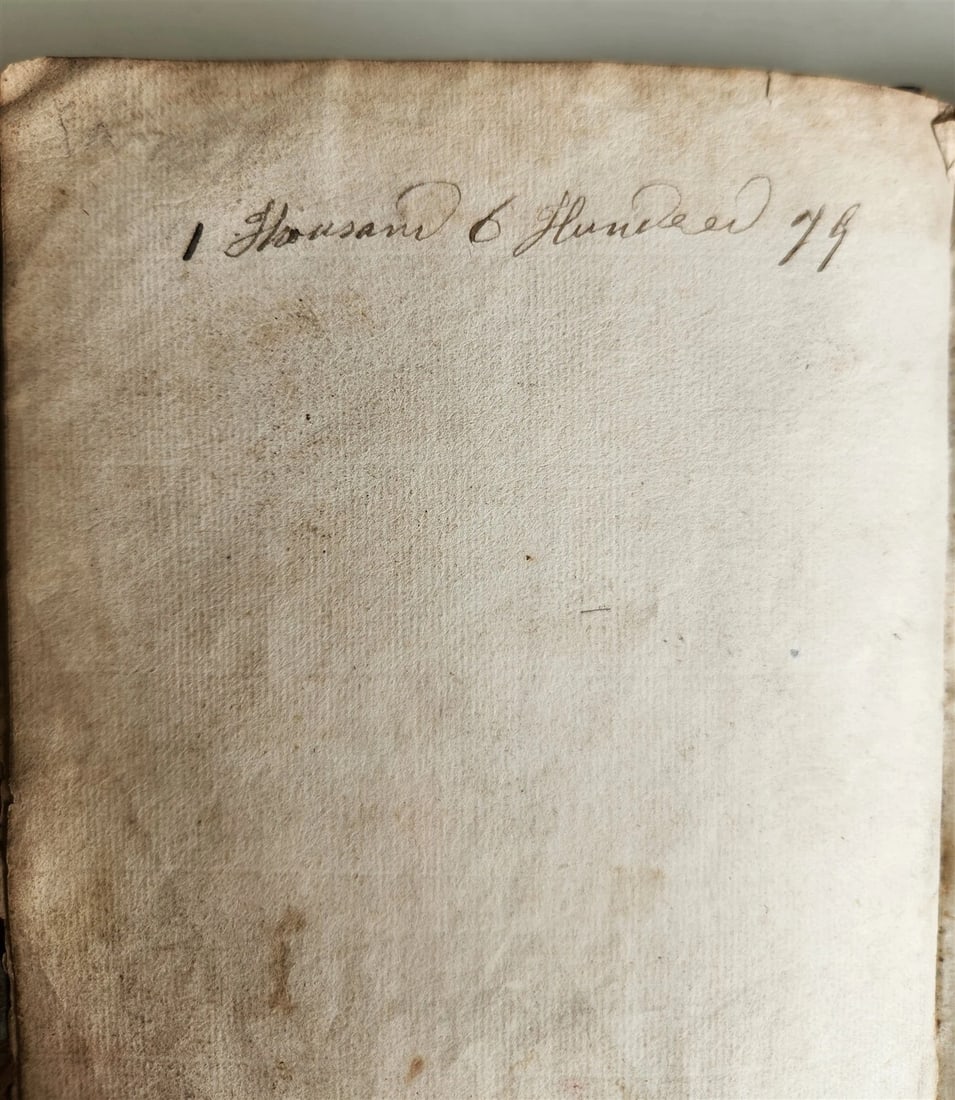 1 Thousand 6 Hundred 79